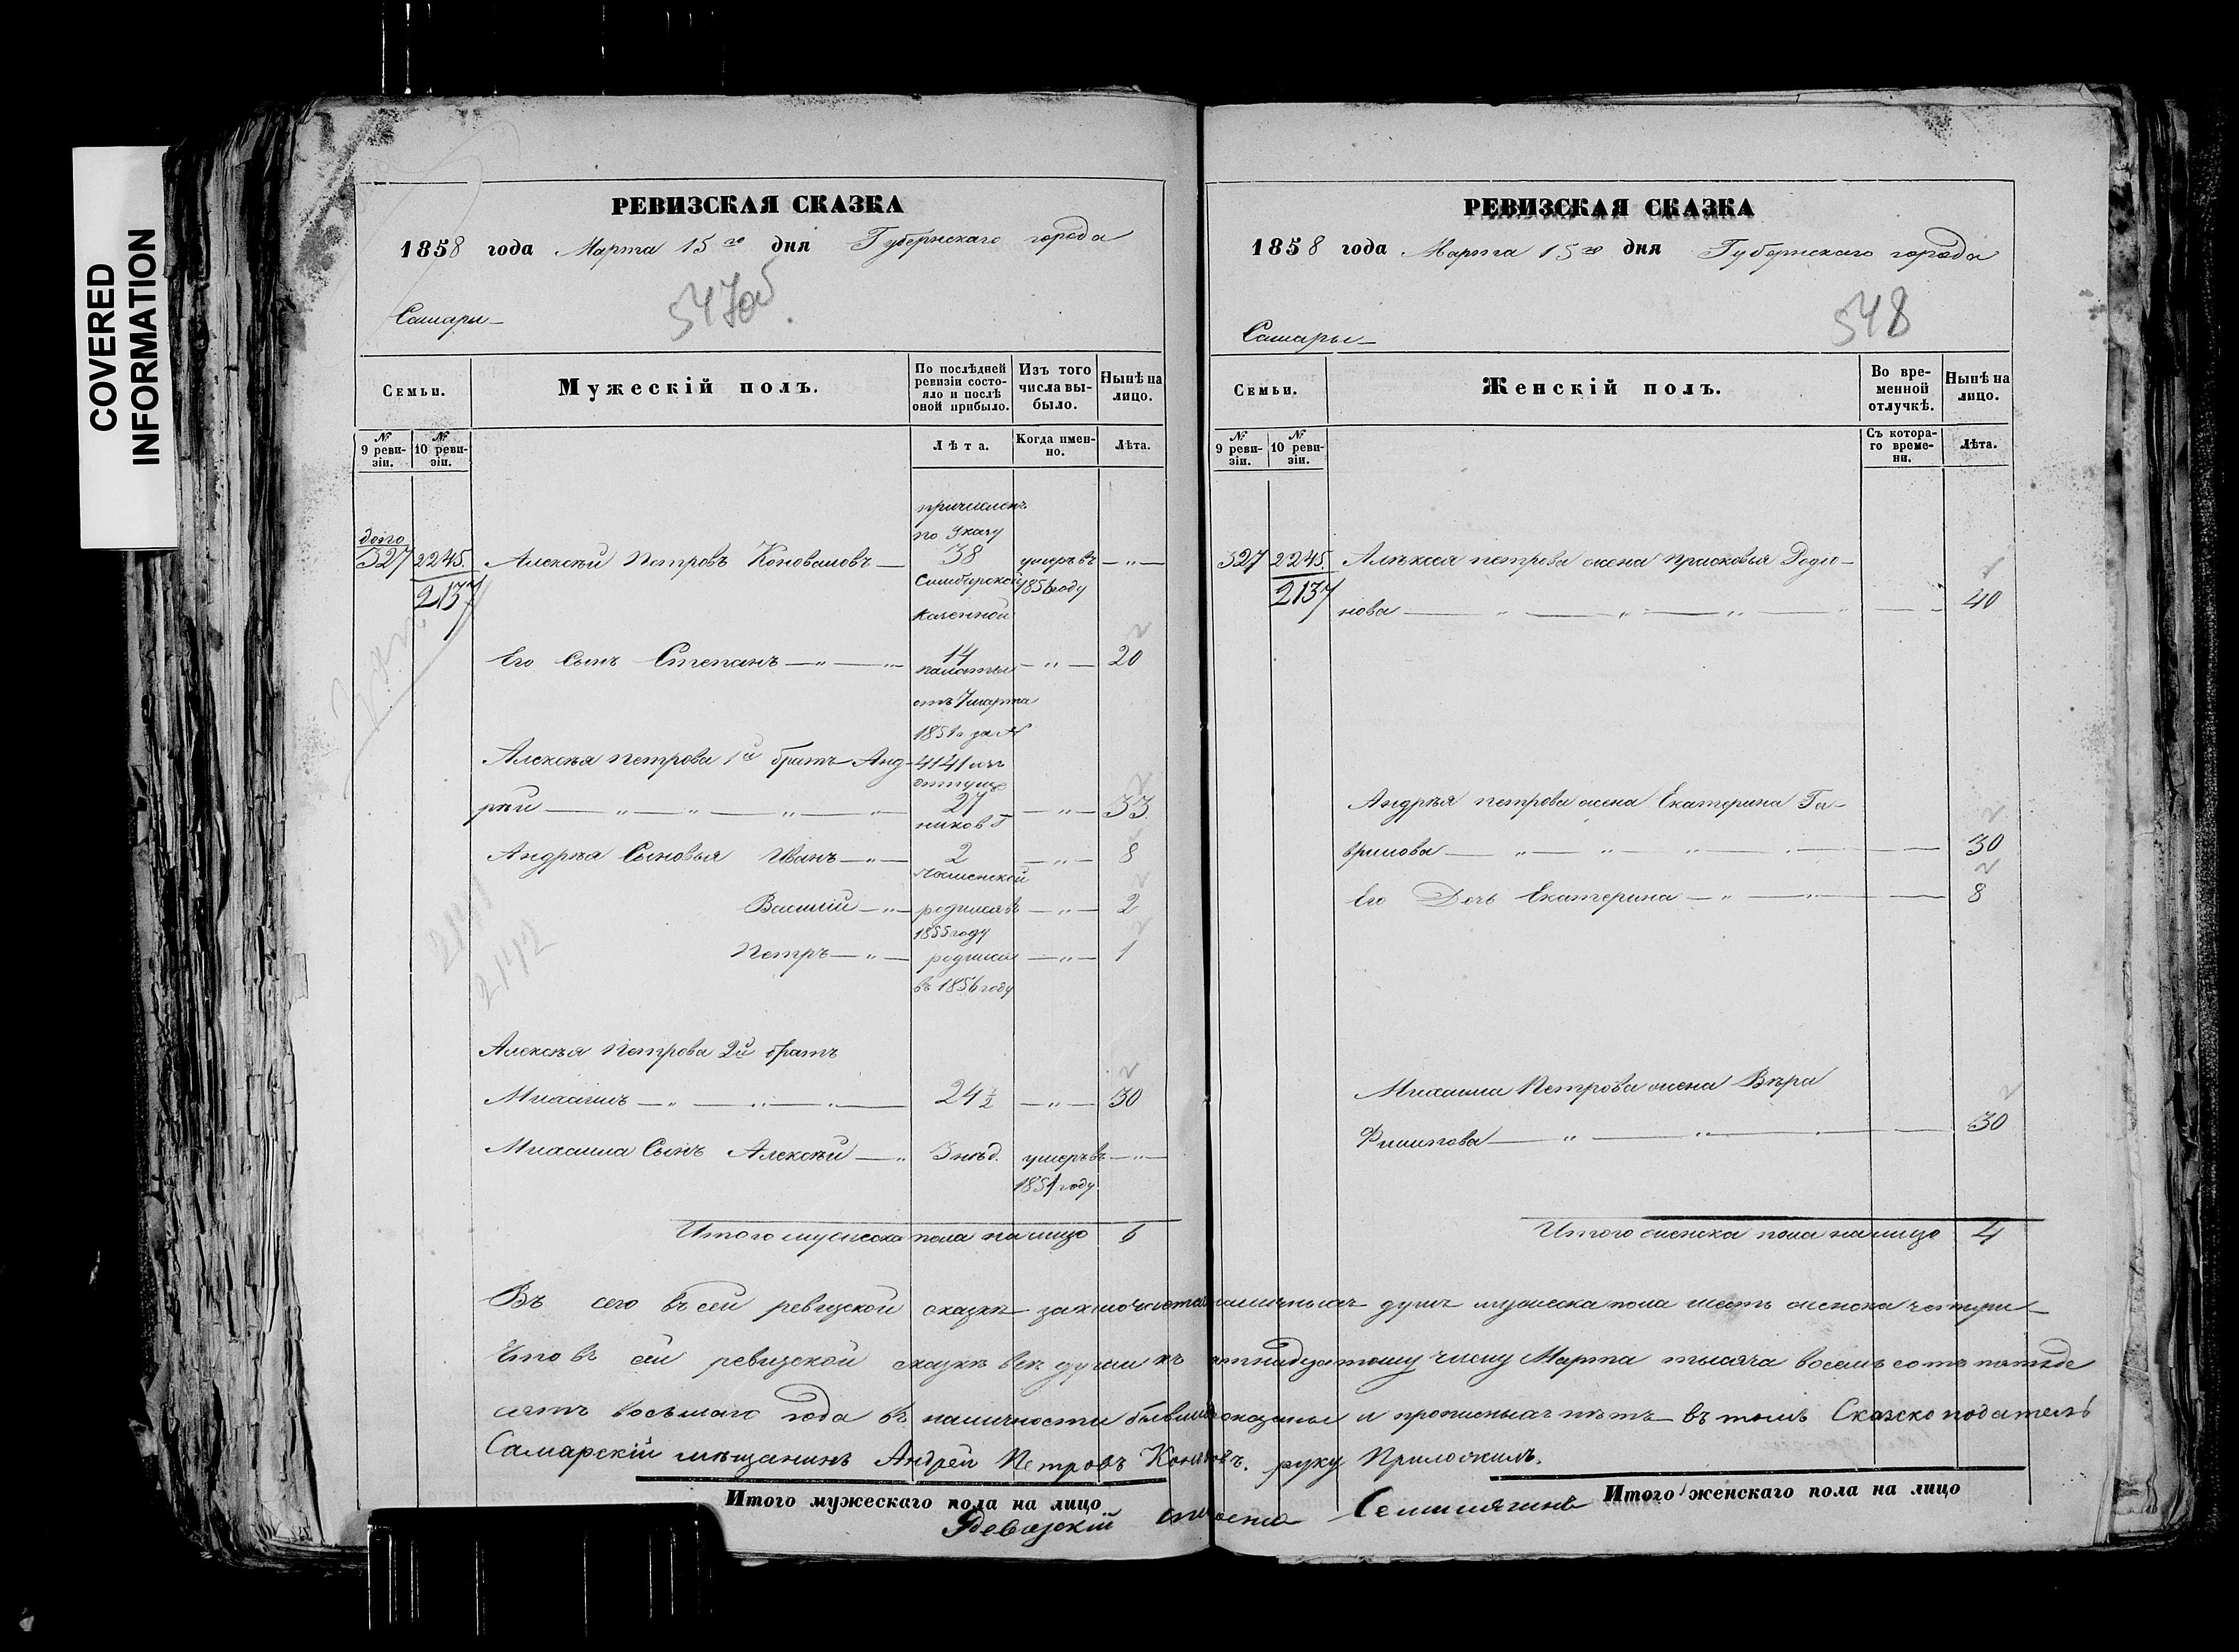 COVERED
INFORMATION
РЕВИЗСКАЯ СКАЗКА
1858 года Марта 15го дня Губернскаго города
Самары
547об.
Семьи.
Мужескій полъ.
По послѣдней ревизіи состояло и послѣ оной прибыло.
Изъ того числа выбыло.
Нынѣ на лицо.
№ 9 ревизіи.
№ 10 ревизіи.
Лѣта.
Когда именно.
Лѣта.
причисленъ
по Указу
327 2245. Алексѣй Петровъ Коноваловъ 38 умеръ въ — „ —
2137 Симбирской 1856 году
Казенной
Его Сынъ Степанъ — „ — „ 14 — „ — 20
палаты
отъ 7 марта
1851 за №
Алексѣя Петрова 1й братъ Анд- 4141 изъ
отпуще
рѣй — „ — „ — „ — „ 27 — „ — 33
никовъ
Андрѣя Сыновья Иванъ — „ — 2 — „ — 8
Василій — „ — родился въ — „ — 2
1855 году
Петръ — „ — родился — „ — 1
въ 1856 году
2141
2142
Алексѣя Петрова 2й братъ
Михаилъ — „ — „ — „ — 24½ — „ — 30
Михаила Сынъ Алексѣй — „ 3 нед. умеръ въ — „ —
1851 году.
Итого мужеска пола на лицо 6
РЕВИЗСКАЯ СКАЗКА
1858 года Марта 15го дня Губернскаго города
Самары
548
Семьи.
Женскій полъ.
Во временной отлучкѣ.
Нынѣ на лицо.
№ 9 ревизіи.
№ 10 ревизіи.
Съ котораго времени.
Лѣта.
327 2245. Алѣксея петрова жена прасковья Родіо-
2137 нова — „ — „ — „ — „ — 40
Андрѣя петрова жена Екатерина Га-
врилова — „ — „ — „ — 30
Его Дочь Екатерина — „ — „ — 8
Михаила Петрова жена Вѣра
Филипова — „ — „ — 30
Итого женска пола на лицо 4
Въ сего въ сей ревизской сказкѣ заключается наличныхъ душъ мужеска пола шесть женска четыре
Что въ сей ревизской сказкѣ всѣ души къ пятнадцатому числу Марта тысяча восемь сотъ пятьде
сятъ восьмаго года въ наличности бывшія показаны и прописныхъ нѣтъ въ томъ Сказкоподатель
Самарскій мѣщанинъ Андрей Петровъ руку Приложилъ.
Итого мужескаго пола на лицо
Итого женскаго пола на лицо
Ревизскій староста